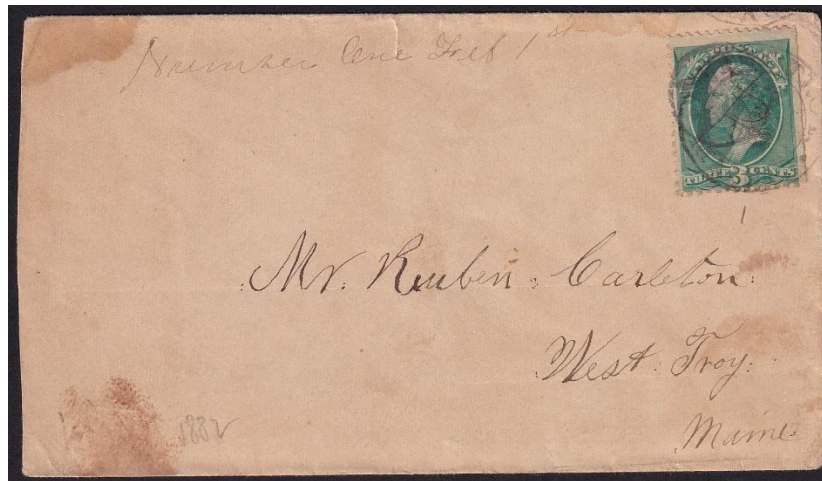 Number One Feb 1st
THREE 3 CENTS
1
Mr. Reuben Carleton.
West Troy.
Maine.
1882